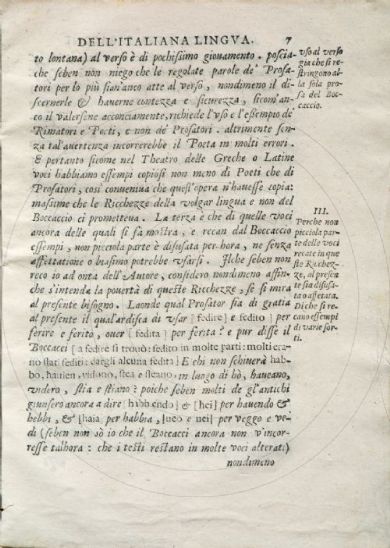 DELL'ITALIANA LINGVA. 7
to lontana) al verso è di pochissimo giouamento. poscia-
che seben non niego che le regolate parole de' Prosa-
tori per lo più sian'anco atte al verso, nondimeno il di-
scernerle & hauerne contezza e sicurezza, sicom'an-
co il valersene acconciamente, richiede l'vso e l'essempio de'
Rimatori e Poeti, e non de' Prosatori. altrimente sen-
za tal'auertenza incorrerebbe il Poeta in molti errori.
E pertanto sicome nel Theatro delle Greche o Latine
voci habbiamo essempi copiosi non meno di Poeti che di
Prosatori, così conueniua che quest'opera n'hauesse copia:
massime che le Ricchezze della volgar lingua e non del
Boccaccio ci prometteua. La terza è che di quelle voci
ancora delle quali si fà mostra, e recan dal Boccaccio
essempi, non picciola parte è disusata per hora, ne senza
affettatione o biasimo potrebbe vsarsi. Ilche seben non
reco io ad onta dell'Autore, considero nondimeno affin-
che s'intenda la pouertà di queste Ricchezze, se si mira
al presente bisogno. Laonde qual Prosator sia di gratia
al presente il qual'ardisca di vsar [fedire] e fedito] per
ferire e ferito, ouer [fedita] per ferita? e pur disse il
Boccacci [a fedire si trouò: fedito in molte parti: molti era-
no stati
E chi non schiuerà hab-
bo, haueu, vidono, stea e steano, in luogo di hò, haueano,
videro, stia e stiano? poiche seben molti de gl'antichi
giunsero ancora a dire [habbendo] & [hei] per hauendo &
hebbi, & [haia] per habbia, [ueo e uei] per veggo e ve-
di (seben non sò io che il Boccacci ancora non v'incor-
resse talhora: che i testi restano in molte voci alterati)
nondimeno
vso al verso
gia che si re-
stringono al
la sola pro-
sa del Boc-
caccio.
III.
Perche non
picciola par-
te delle voci
recate in que
ste Ricchez-
ze, al presen
te sia disusa-
ta o affetata.
Di che si re-
cano essempi
di varie sor-
ti.